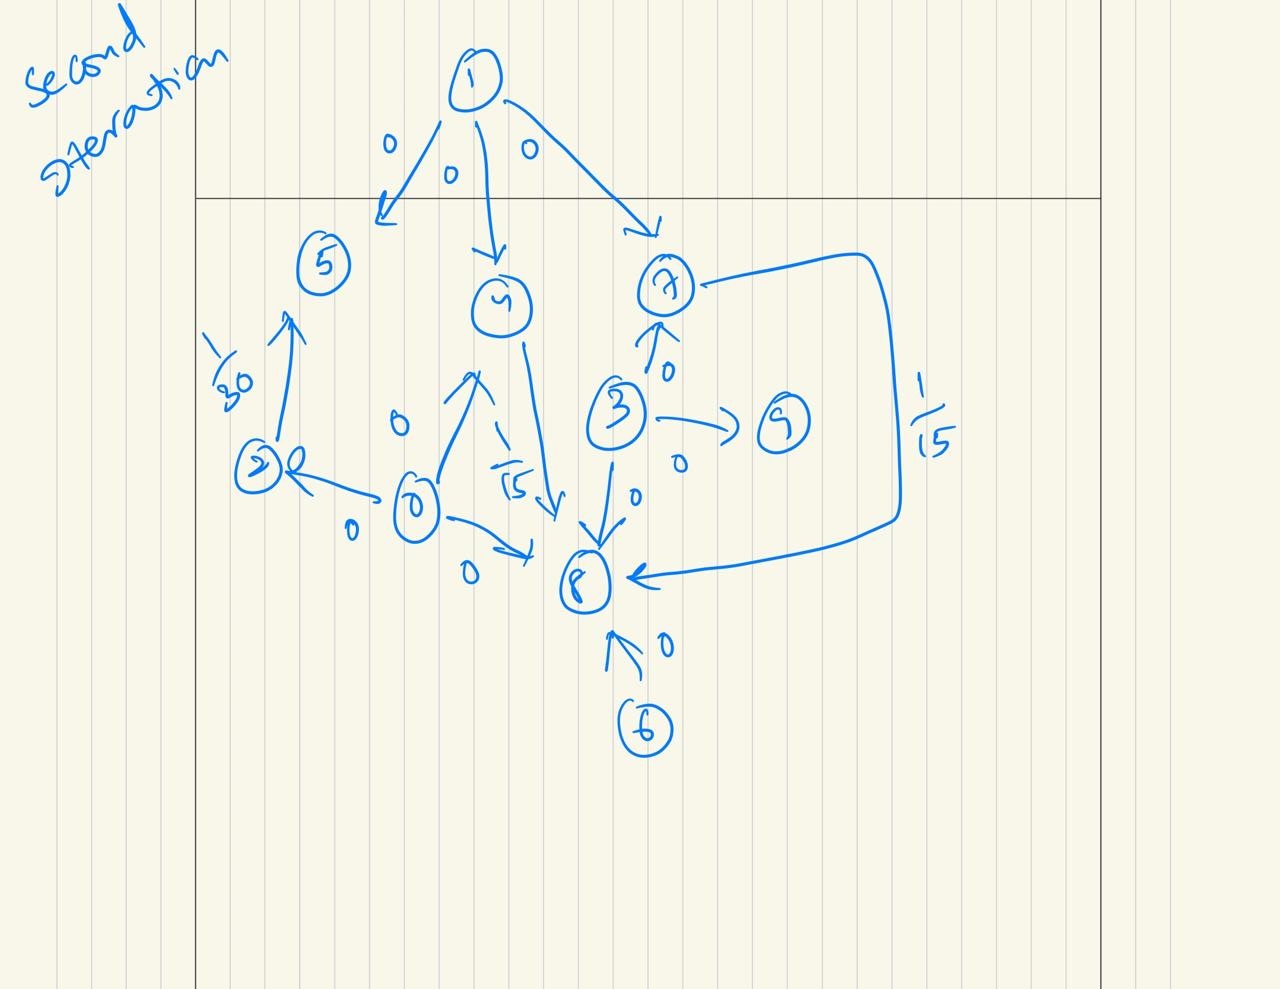 second
iteration
1
0
0
0
5
4
7
1/30
0
0
3
9
1/15
2
0
1/15
0
0
0
0
8
0
6